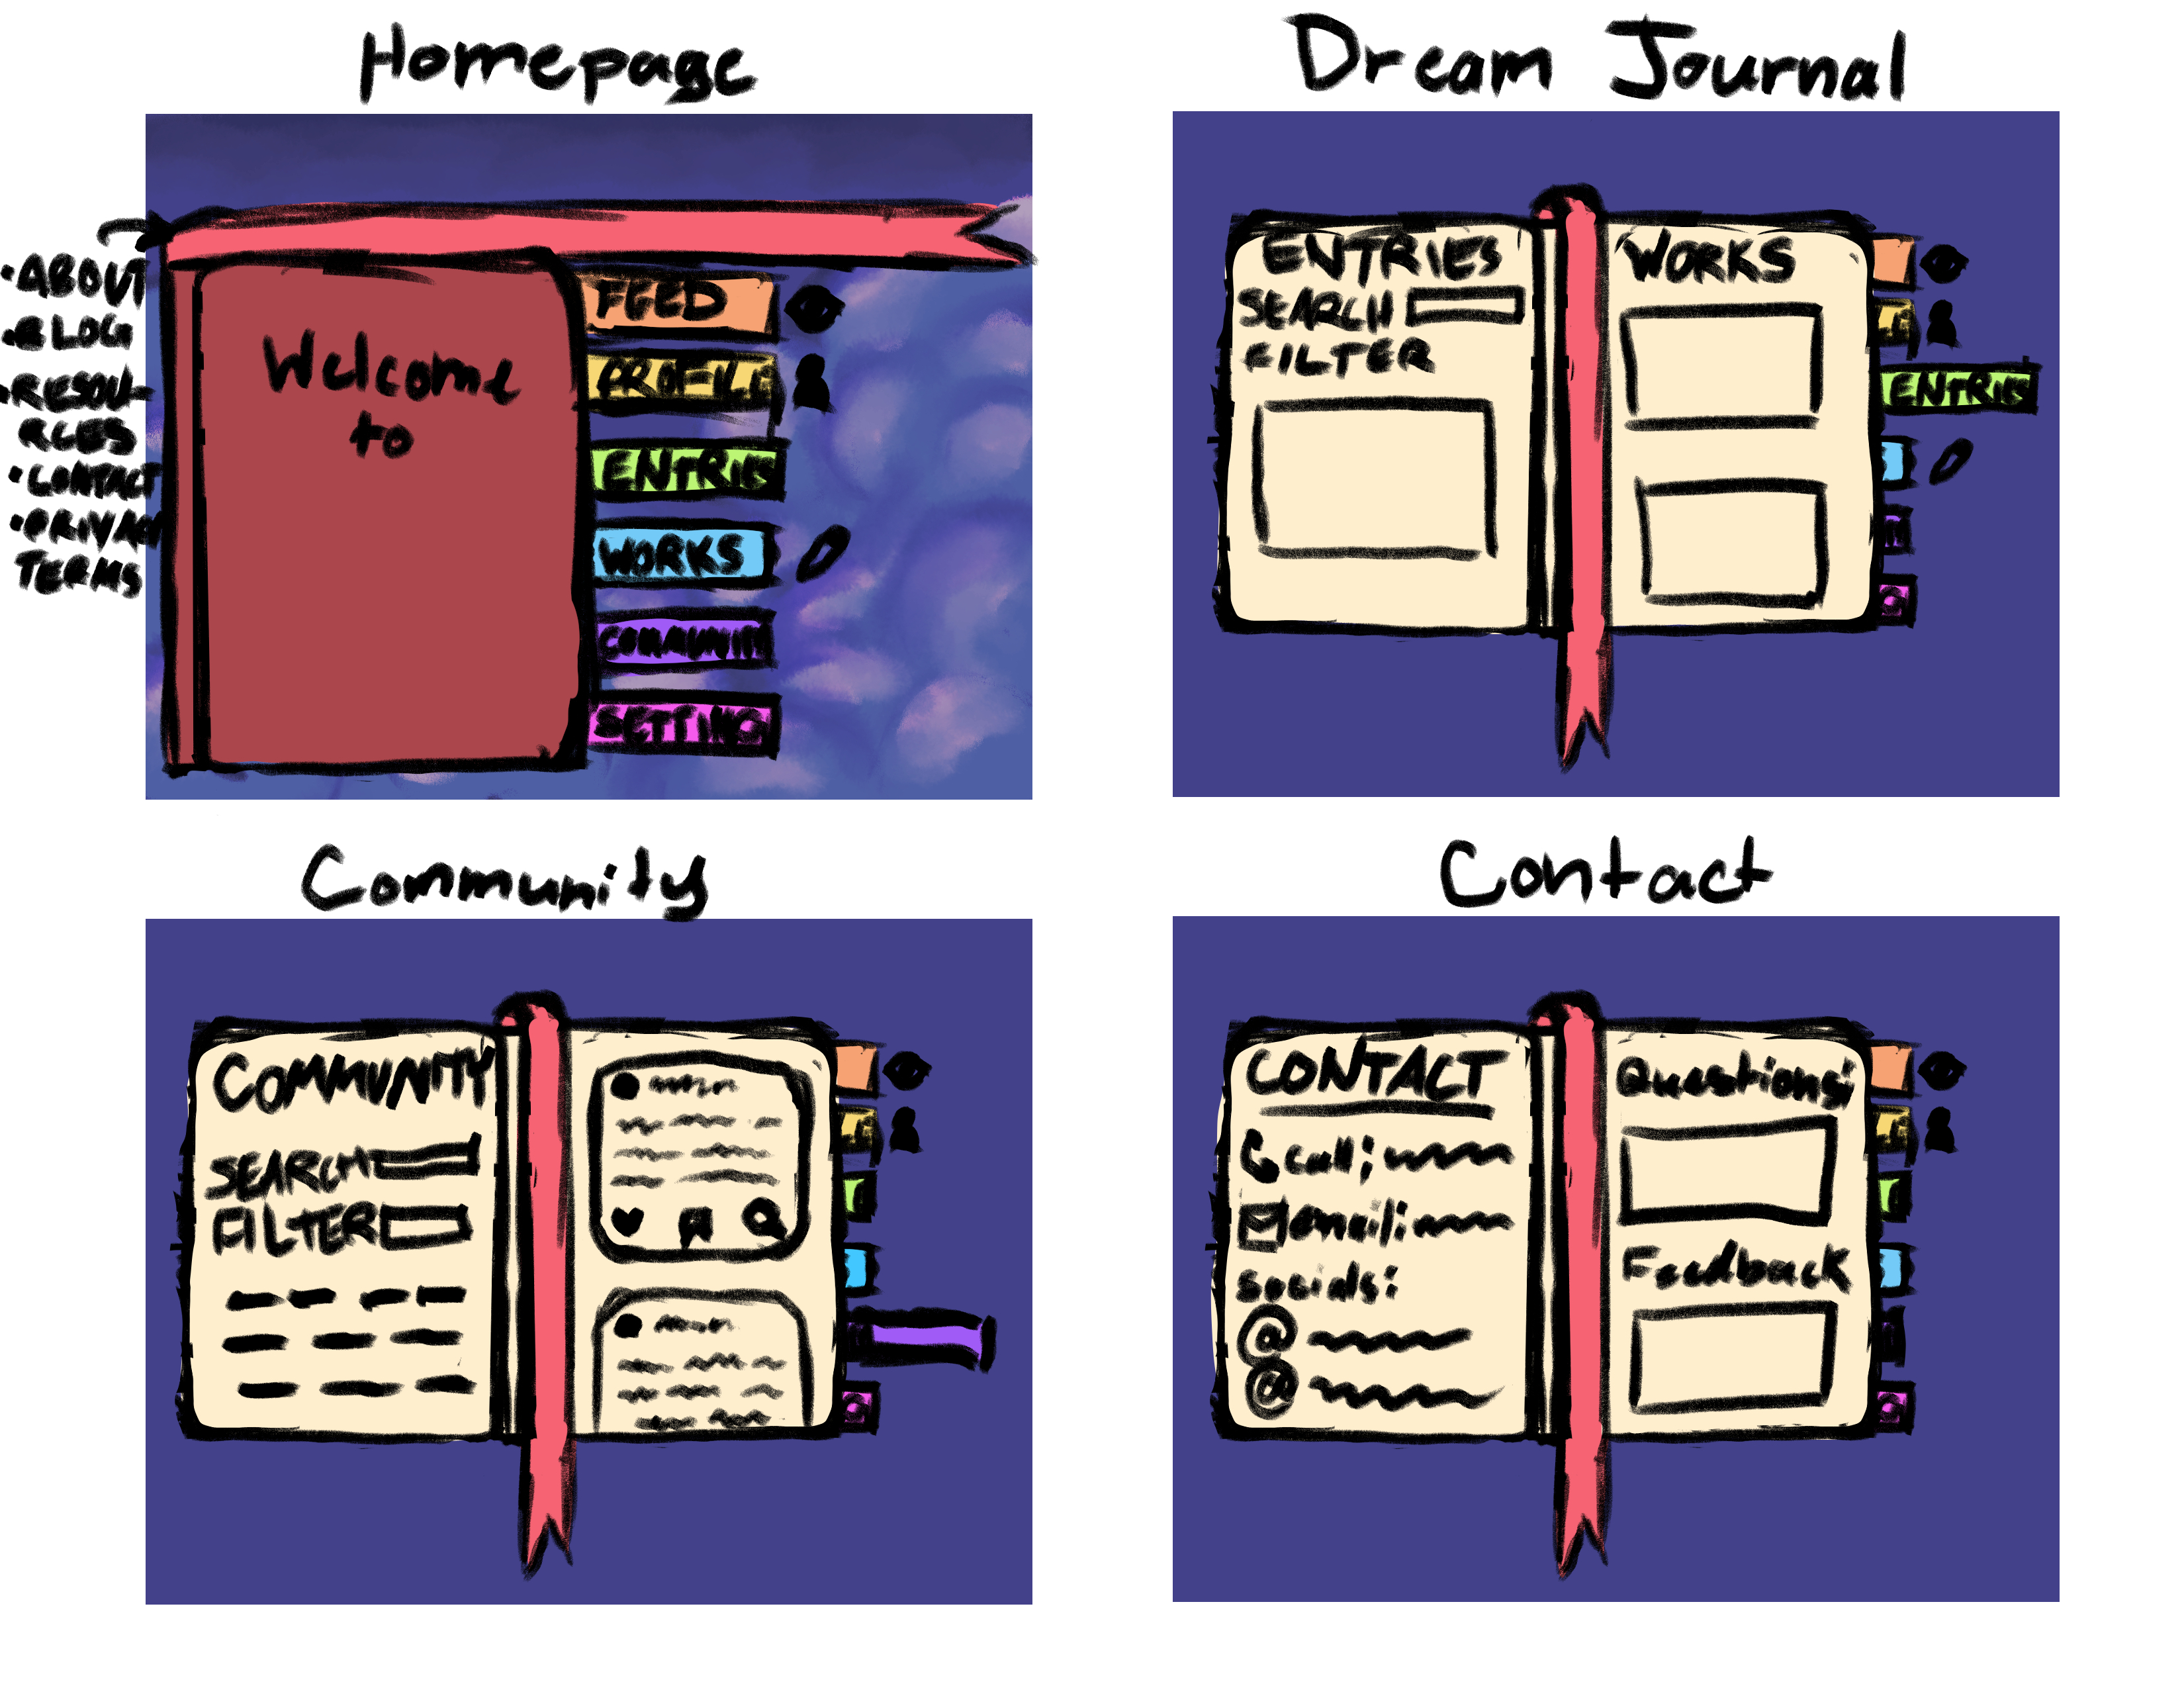 Homepage
• ABOUT
• BLOG
• RESOU-
RCES
• CONTACT
• PRIVACY
TERMS
Welcome
to
FEED
PROFILE
ENTRIES
WORKS
COMMUNITY
SETTING
Dream Journal
ENTRIES
SEARCH
FILTER
WORKS
ENTRIES
Community
COMMUNITY
SEARCH
FILTER
Contact
CONTACT
call:
email:
socials:
@
@
Questions:
Feedback